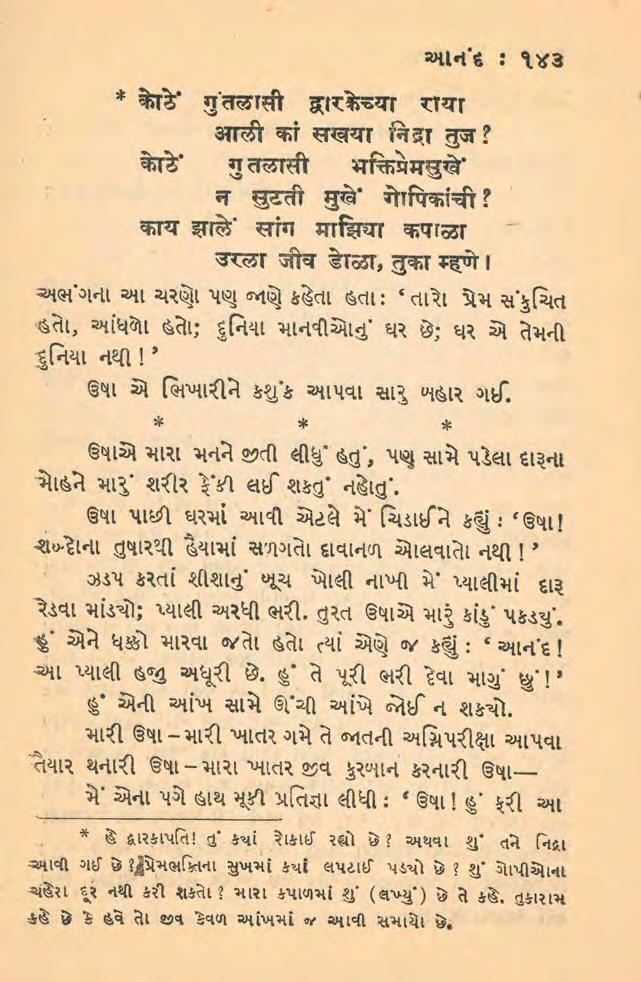 આનંદ : ૧૪૩
* कोठें गुंतलासी द्वारकेच्या राया
आली कां सखया निद्रा तुज ?
कोठें गुतलासी भक्तिप्रेमसुखें
न सुटती मुखें गोपिकांची ?
काय झालें सांग माझिया कपाळा
उरला जीव डोळा, तुका म्हणे ।
અભંગના આ ચરણો પણ જાણે કહેતા હતા : ‘ તારો પ્રેમ સંકુચિત
હતો, આંધળો હતો; દુનિયા માનવીઓનું ઘર છે; ઘર એ તેમની
દુનિયા નથી ! ’
ઉષા એ ભિખારીને કશુંક આપવા સારુ બહાર ગઈ.
* * *
ઉષાએ મારા મનને જીતી લીધું હતું, પણ સામે પડેલા દારૂના
મોહને મારું શરીર ફેંકી લઈ શકતું નહોતું.
ઉષા પાછી ઘરમાં આવી એટલે મેં ચિડાઈને કહ્યું : ‘ ઉષા!
શબ્દોના તુષારથી હૈયામાં સળગતો દાવાનળ ઓલવાતો નથી ! ’
ઝડપ કરતાં શીશાનું બૂચ ખોલી નાખી મેં પ્યાલીમાં દારૂ
રેડવા માંડ્યો; પ્યાલી અરધી ભરી. તુરત ઉષાએ મારું કાંડું પકડયું.
હું એને ધક્કો મારવા જતો હતો ત્યાં એણે જ કહ્યું : ‘ આનંદ !
આ પ્યાલી હજી અધૂરી છે. હું તે પૂરી ભરી દેવા માગું છું ! ’
હું એની આંખ સામે ઊંચી આંખે જોઈ ન શક્યો.
મારી ઉષા – મારી ખાતર ગમે તે જાતની અગ્નિપરીક્ષા આપવા
તૈયાર થનારી ઉષા – મારા ખાતર જીવ કુરબાન કરનારી ઉષા—
મેં એના પગે હાથ મૂકી પ્રતિજ્ઞા લીધી : ‘ ઉષા ! હું ફરી આ
* હે દ્વારકાપતિ! તું ક્યાં રોકાઈ રહ્યો છે ? અથવા શું તને નિદ્રા
આવી ગઈ છે ? પ્રેમભક્તિના સુખમાં ક્યાં લપટાઈ પડ્યો છે ? શું ગોપીઓના
ચહેરા દૂર નથી કરી શકતો ? મારા કપાળમાં શું (લખ્યું) છે તે કહે. તુકારામ
કહે છે કે હવે તો જીવ કેવળ આંખમાં જ આવી સમાયો છે.